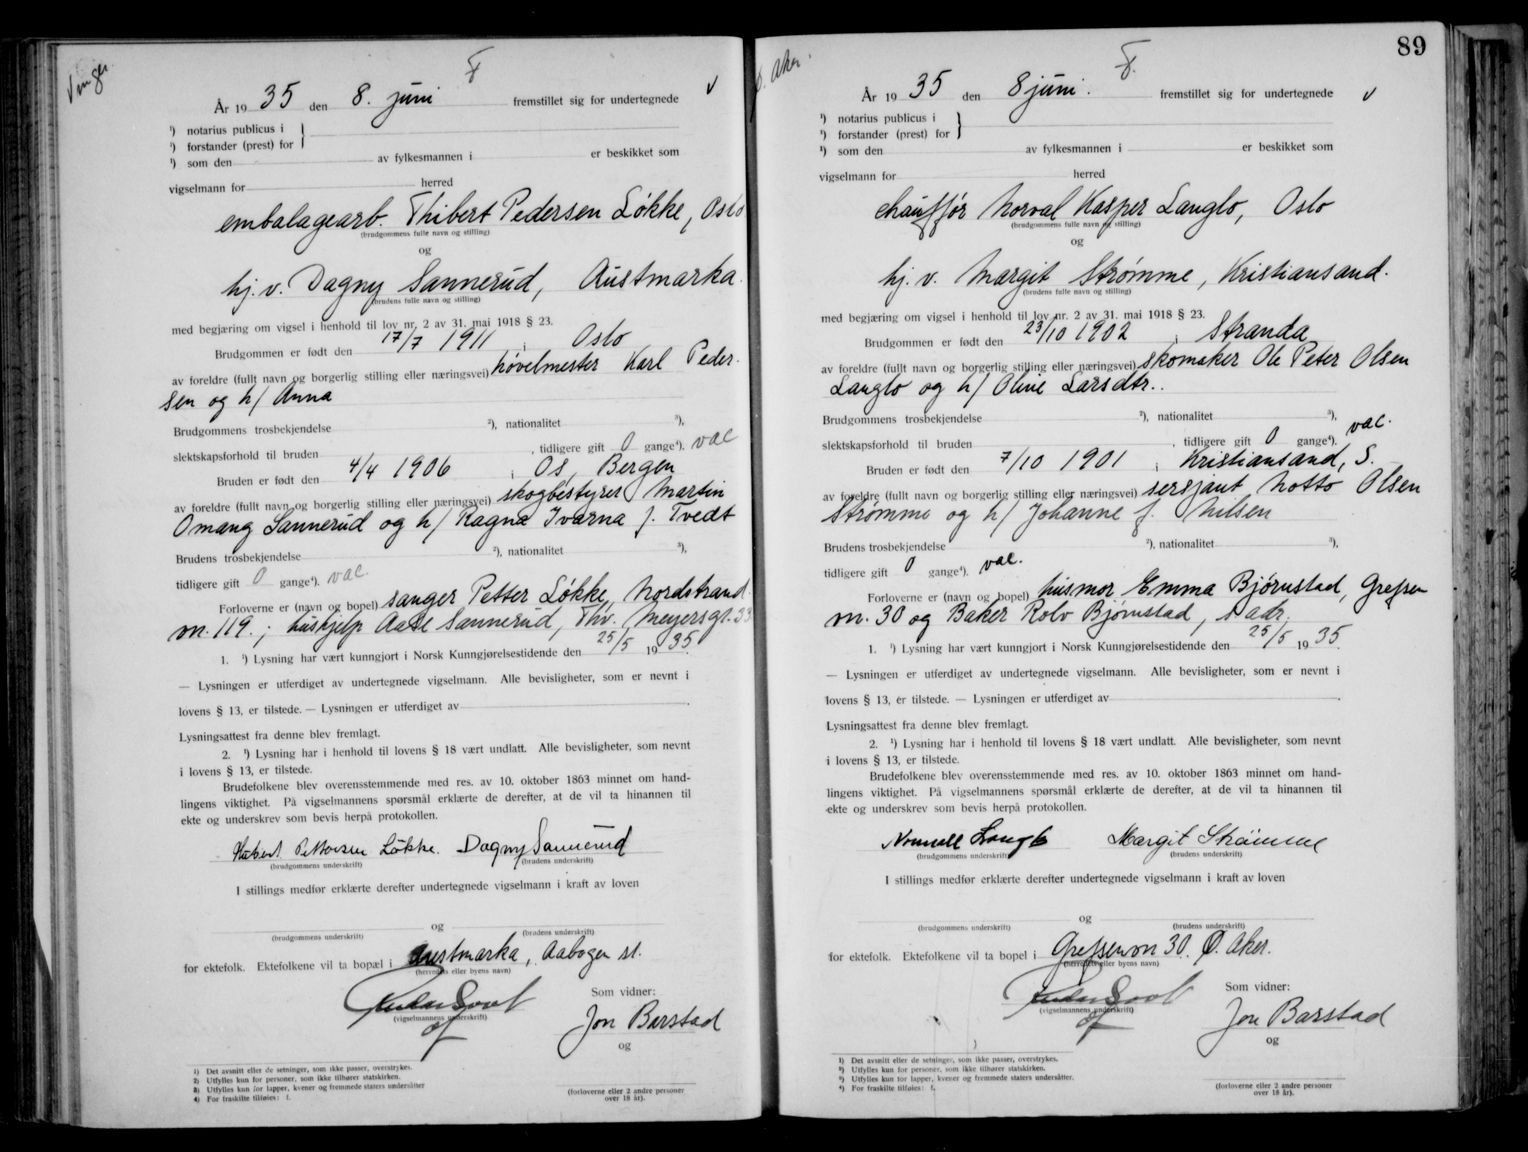 Vinger
F
År 19 35 den 8. juni fremstillet sig for undertegnede
¹) notarius publicus i
¹) forstander (prest) for
¹) som den av fylkesmannen i er beskikket som
vigselmann for herred
embalagearb. Thibert Pedersen Løkke, Oslo
(brudgommens fulle navn og stilling)
og
hj. v. Dagny Sannerud, Austmarka.
(brudens fulle navn og stilling)
med begjæring om vigsel i henhold til lov nr. 2 av 31. mai 1918 § 23.
Brudgommen er født den 17/7 1911 i Oslo
av foreldre (fullt navn og borgerlig stilling eller næringsvei) høvelmester Karl Peder-
sen og h/ Anna
Brudgommens trosbekjendelse ²), nationalitet ³),
slektskapsforhold til bruden , tidligere gift 0 gange⁴). vac
Bruden er født den 4/4 1906 i Os, Bergen
av foreldre (fullt navn og borgerlig stilling eller næringsvei) skogbestyrer Martin
Omang Sannerud og h/ Ragna Ivarna f. Tvedt
Brudens trosbekjendelse ²), nationalitet ³),
tidligere gift 0 gange⁴). vac.
Forloverne er (navn og bopel) sanger Petter Løkke, Nordstrand
vn. 119. ; hushjelp Aase Sannerud, Thv. Meyersgt. 33
1. ¹) Lysning har vært kunngjort i Norsk Kunngjørelsestidende den 25/5 19 35.
— Lysningen er utferdiget av undertegnede vigselmann. Alle bevisligheter, som er nevnt i
lovens § 13, er tilstede. — Lysningen er utferdiget av .
Lysningsattest fra denne blev fremlagt.
2. ¹) Lysning har i henhold til lovens § 18 vært undlatt. Alle bevisligheter, som nevnt
i lovens § 13, er tilstede.
Brudefolkene blev overensstemmende med res. av 10. oktober 1863 minnet om hand-
lingens viktighet. På vigselmannens spørsmål erklærte de derefter, at de vil ta hinannen til
ekte og underskrev som bevis herpå protokollen.
Thibert Pettersen Løkke. Dagny Sannerud
(brudgommens underskrift) (brudens underskrift)
I stillings medfør erklærte derefter undertegnede vigselmann i kraft av loven
og
(brudgommens underskrift) (brudens underskrift)
for ektefolk. Ektefolkene vil ta bopæl i Austmarka, Aabogen st.
(herredets eller byens navn)
Som vidner:
(vigselmannens underskrift)
Jon Barstad
og
1) Det avsnitt eller de setninger, som ikke passer, overstrykes.
2) Utfylles kun for personer, som ikke tilhører statskirken.
3) Utfylles kun for lapper, kvener og fremmede staters undersåtter
4) For fraskilte tilføies: f.
(forloverne eller 2 andre personer
over 18 år).
Ø. Aker.
89
F.
År 19 35 den 8 juni. fremstillet sig for undertegnede
¹) notarius publicus i
¹) forstander (prest) for
¹) som den av fylkesmannen i er beskikket som
vigselmann for herred
chauffør Norval Kasper Langlo, Oslo
(brudgommens fulle navn og stilling)
og
hj. v. Margit Strømme, Kristiansand.
(brudens fulle navn og stilling)
med begjæring om vigsel i henhold til lov nr. 2 av 31. mai 1918 § 23.
Brudgommen er født den 23/10 1902 i Stranda
av foreldre (fullt navn og borgerlig stilling eller næringsvei) skomaker Ole Peter Olsen
Langlo og h/ Oline Larsdtr..
Brudgommens trosbekjendelse ²), nationalitet ³),
slektskapsforhold til bruden , tidligere gift 0 gange⁴). vac.
Bruden er født den 7/10 1901 i Kristiansand, S.
av foreldre (fullt navn og borgerlig stilling eller næringsvei) sersjant Notto Olsen
Strømme og h/ Johanne f. Nilsen
Brudens trosbekjendelse ²), nationalitet ³),
tidligere gift 0 gange⁴). vac.
Forloverne er (navn og bopel) husmor Emma Bjørnstad, Grefsen
vn. 30 og Baker Rolv Bjørnstad, s. adr.
1. ¹) Lysning har vært kunngjort i Norsk Kunngjørelsestidende den 25/5 19 35.
— Lysningen er utferdiget av undertegnede vigselmann. Alle bevisligheter, som er nevnt i
lovens § 13, er tilstede. — Lysningen er utferdiget av .
Lysningsattest fra denne blev fremlagt.
2. ¹) Lysning har i henhold til lovens § 18 vært undlatt. Alle bevisligheter, som nevnt
i lovens § 13, er tilstede.
Brudefolkene blev overensstemmende med res. av 10. oktober 1863 minnet om hand-
lingens viktighet. På vigselmannens spørsmål erklærte de derefter, at de vil ta hinannen til
ekte og underskrev som bevis herpå protokollen.
Langlo Margit Strømme
(brudgommens underskrift) (brudens underskrift)
I stillings medfør erklærte derefter undertegnede vigselmann i kraft av loven
og
(brudgommens underskrift) (brudens underskrift)
for ektefolk. Ektefolkene vil ta bopel i Grefsenvn 30. Ø. Aker.
(herredets eller byens navn)
Som vidner:
(vigselmannens underskrift)
Jon Barstad
og
1) Det avsnitt eller de setninger, som ikke passer, overstrykes.
²) Utfylles kun for personer, som ikke tilhører statskirken.
³) Utfylles kun for lapper, kvener og fremmede staters undersåtter.
⁴) For fraskilte tilføies: f.
(forloverne eller 2 andre personer
over 18 år).